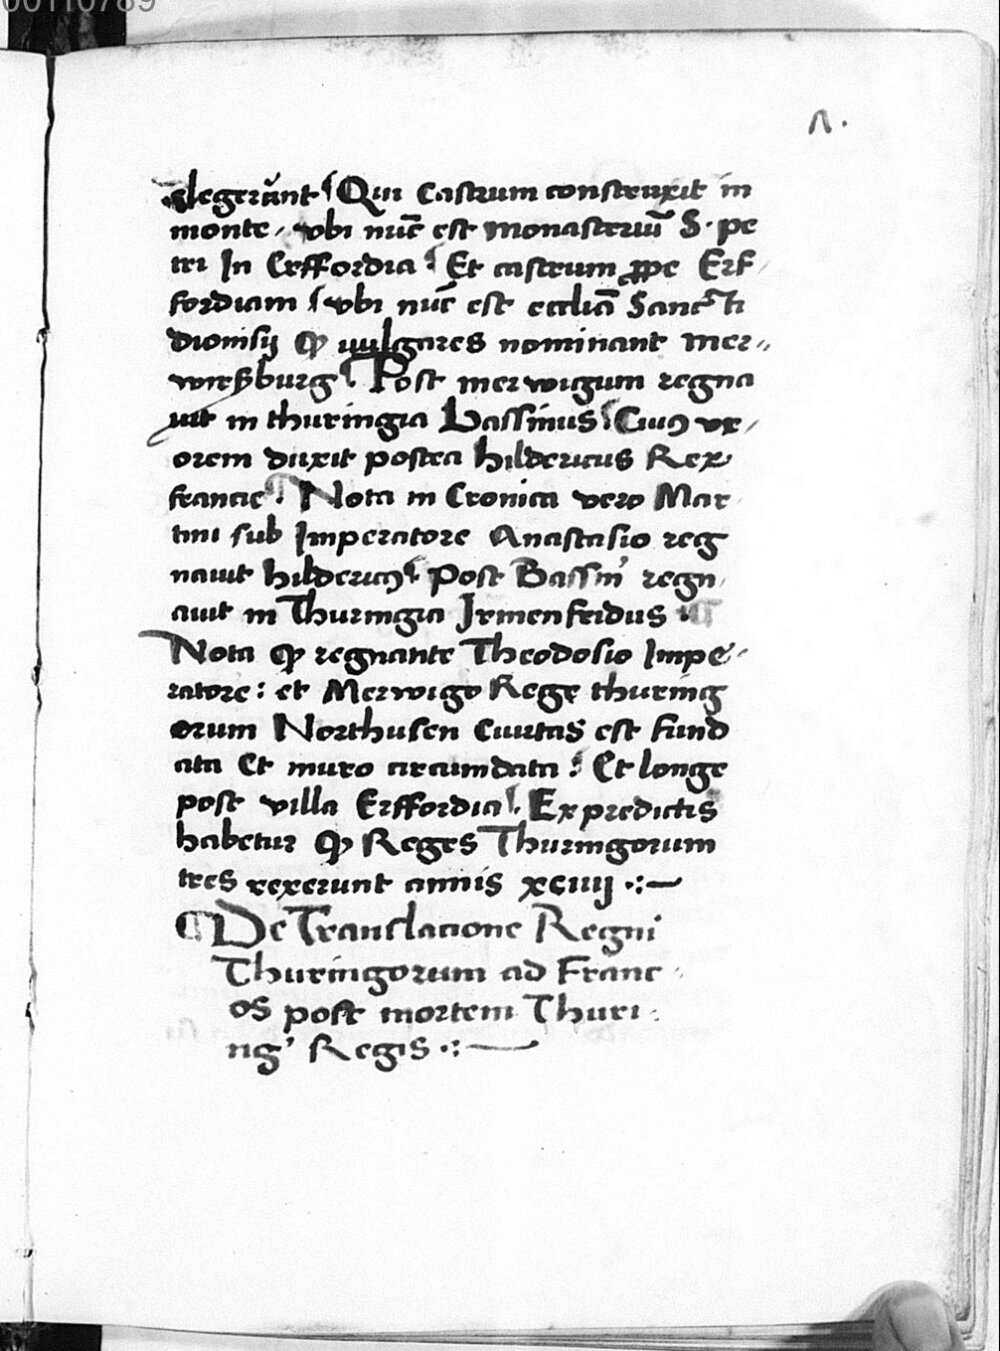 elegerūnt Qui castrum construxit in
monte, vbi nūc est monasteriū S. pe
tri In Erffordia Et castrum ꝓpe Erf
fordiam vbi nūc est eccliā Sancti
dionisij ꝙ uulgares nominant mer„
wißburg Post merwigum regna
uit in thuringia Bassinus Cuiꝯ vx,
orem duxit postea hildericus Rex
francie. Nota in Cronica vero Mar
tini sub Imperatore Anastasio reg
nauit hildericꝯ Post Bassin' regn
auit in Thuringia Irmenfridus
Nota ꝙ regnante Theodosio Impe-
ratore: et Merwigo Rege thuring
orum Northusen Ciuitas est fund
ata Et muro circumdata: Et longe
post villa Erffordia. Ex predictis
habetur ꝙ Reges Thuringorum
tres rexerunt annis xciiij .:—
¶ De Translacione Regni
Thuringorum ad Franc
os post mortem Thuri
ng' Regis .:—